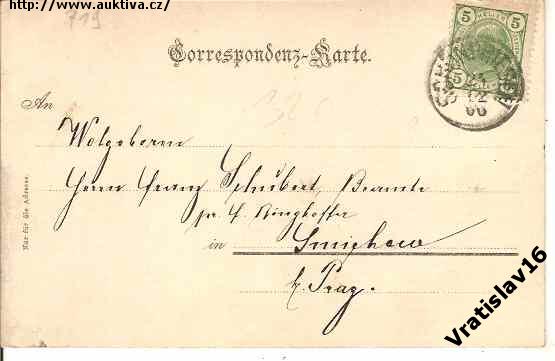 http://www.auktiva.cz/
719
Correspondenz-Karte.
5 HELLER 5
An
Wolgeboren
Herrn Franz Schubert, Beamte
pr. f. Ringhoffer
in Smichow
b. Prag.
Nur für die Adresse.
Vratislav16